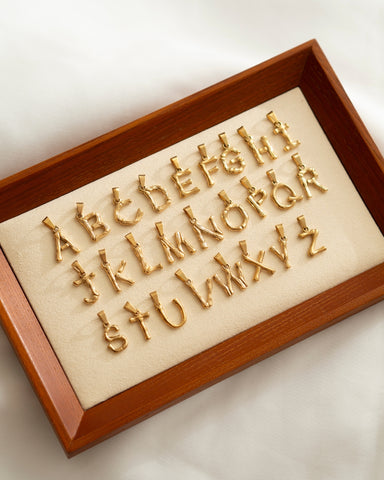 ABCDEFGHI
jKLMNOPQR
stUVWXYZ